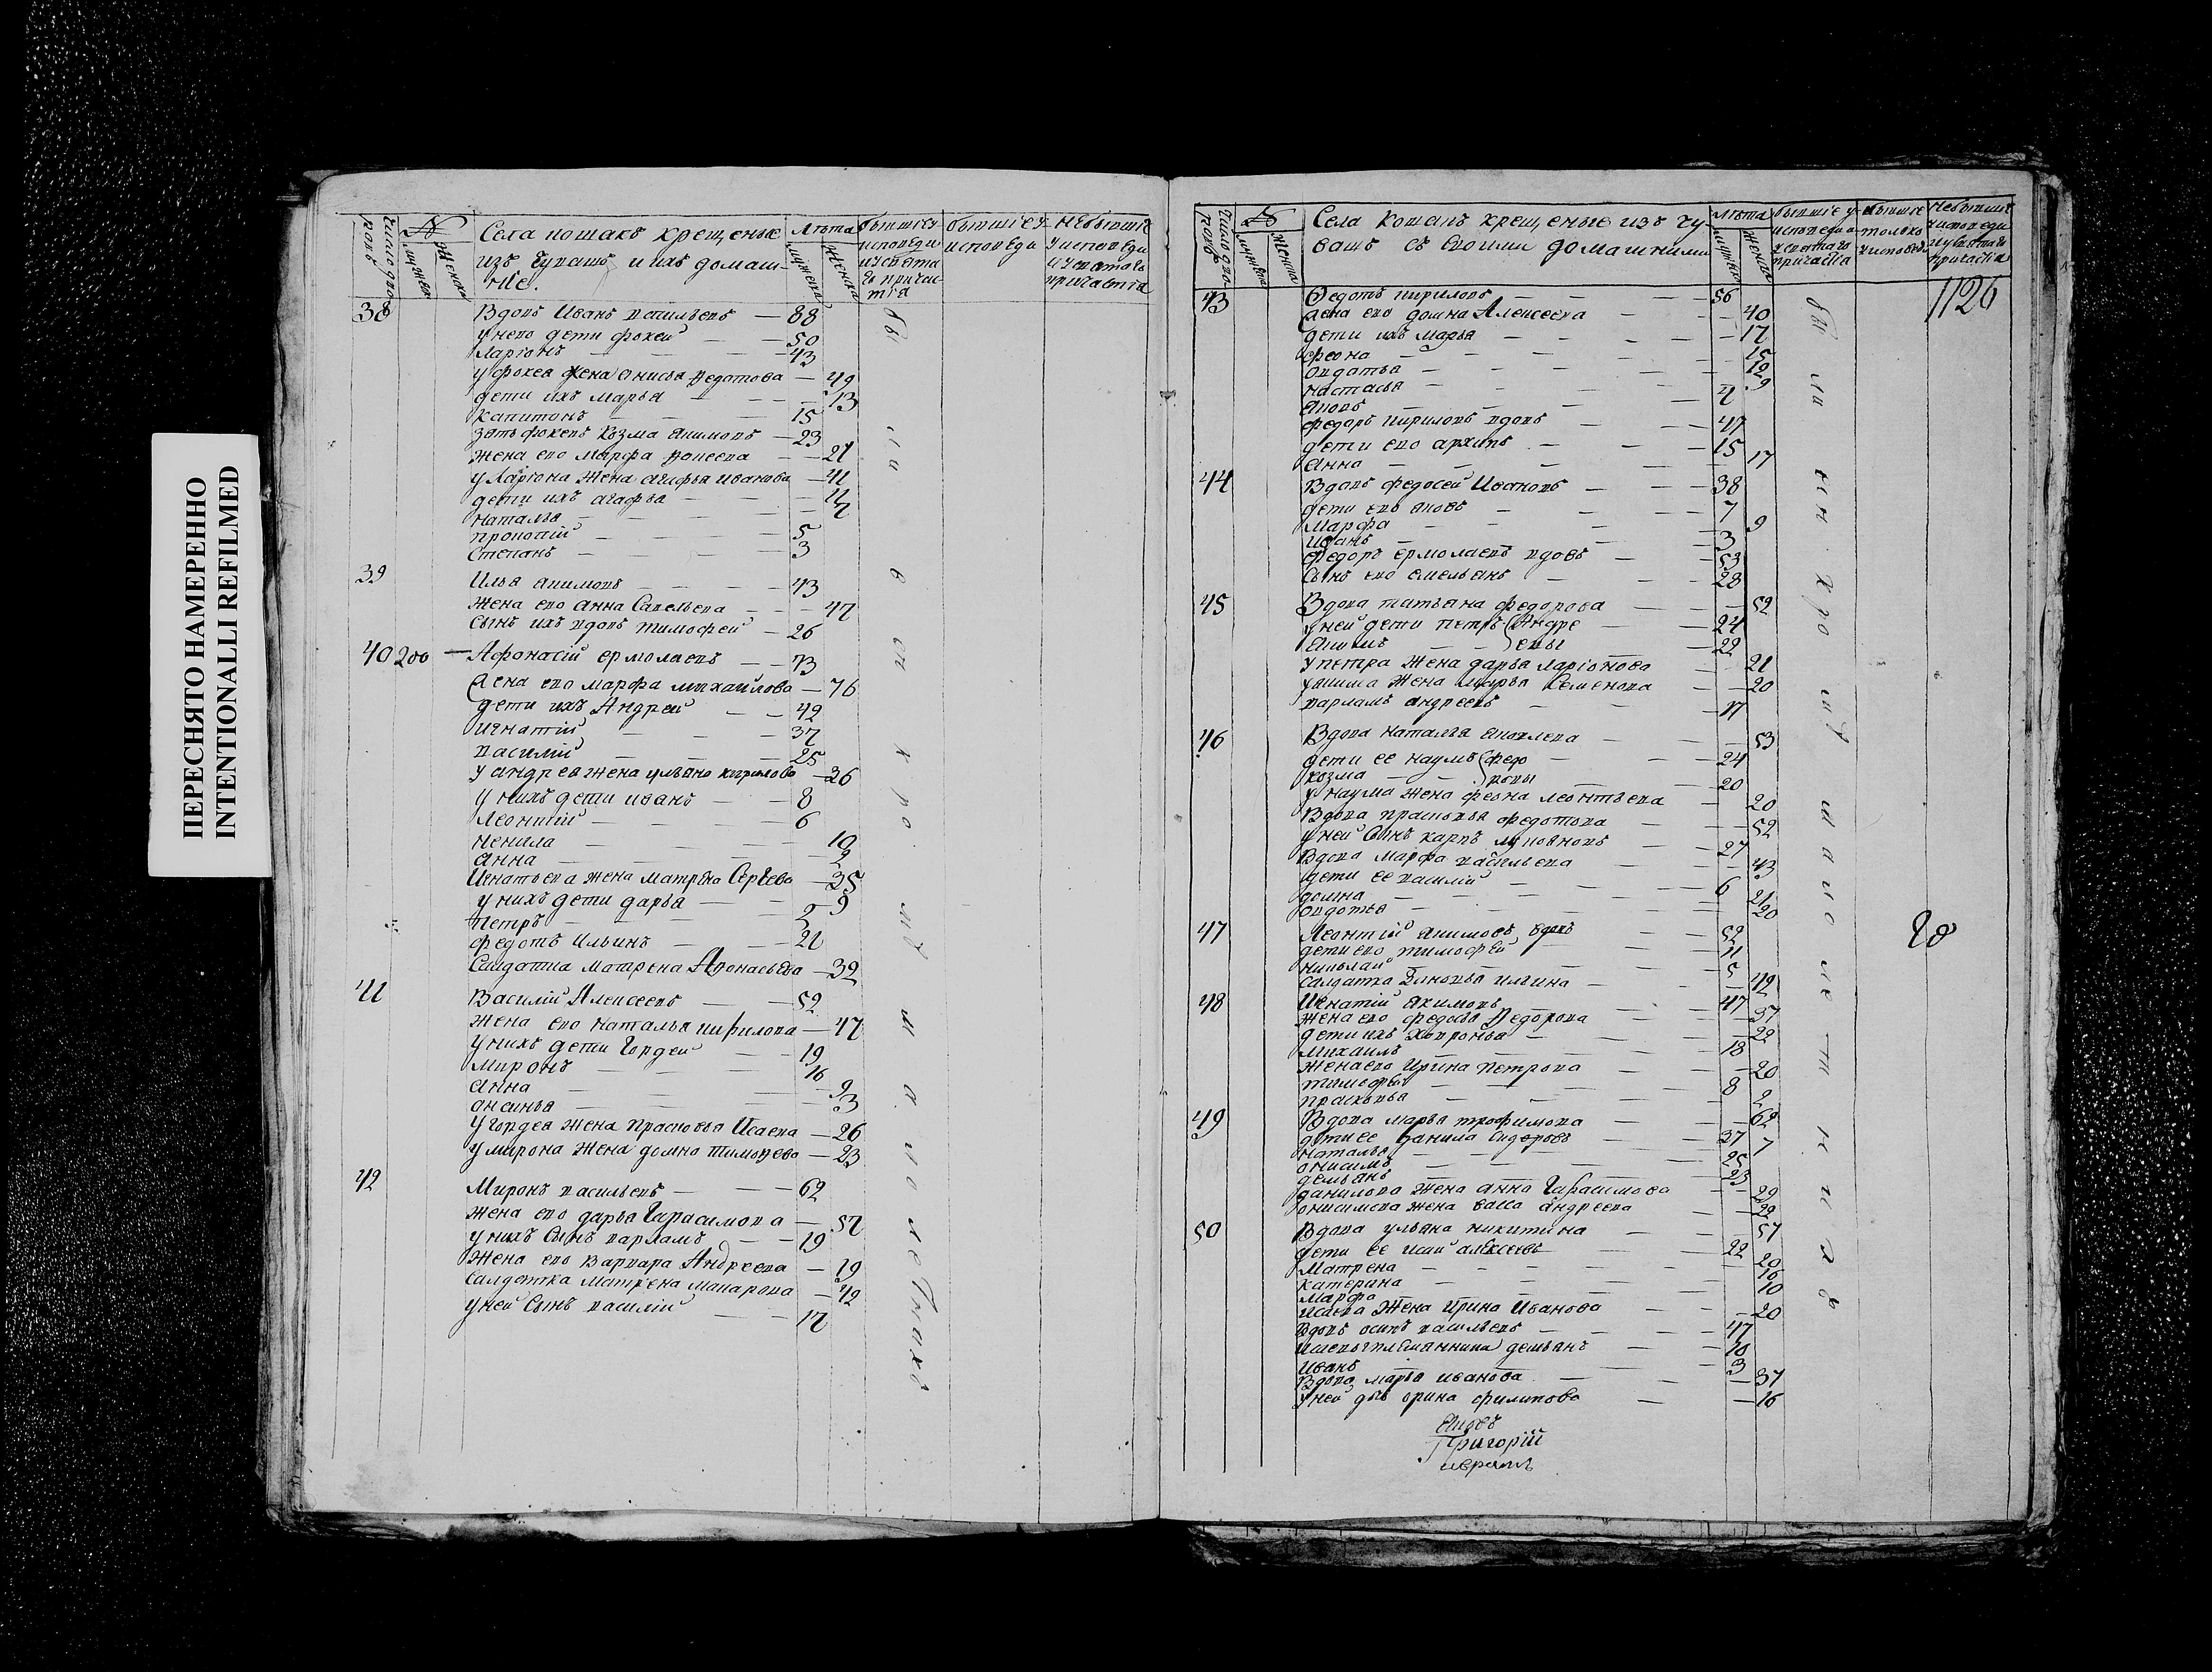 ПЕРЕСНЯТО НАМЕРЕННО
INTENTIONALLI REFILMED
Число дворовъ
№
мужеска
женска
Села кошакъ крещеные
изъ чувашъ и ихъ домаш-
ніе.
Лѣта
мужеска
женска
бывшіе у
исповеди
и у свята
го причас-
тія
бывшіе у
исповеди
небывшіе
у исповеди
и у святаго
причастія
38 Вдовъ Иванъ васильевъ — 88
у него дети фокей — 50
ларіонъ — 43
у фокеа жена анисья Федотова — 49
дети ихъ марья — 13
капитонъ 15
зять фокевъ козма акимовъ — 23
жена его марфа — 21
у Ларіона жена агафья иванова — 41
дети ихъ агафья — 14
наталья —
прокопій — 5
степанъ — 3
39 Илья акимовъ — 43
жена его анна Савельева — 47
сынъ ихъ вдовъ тимофей — 26
40 200 — Афонасій ермолаевъ — 73
жена его марфа михайлова — 76
дети ихъ Андрей — 42
игнатій 37
василій — 25
у андреа жена ульяна кирилова — 36
у нихъ дети иванъ — 8
леонтій — 6
ненила — 10
анна — 2
Игнатьева жена матрена Сергеева — 35
у нихъ дети дарья — 9
петръ —
федотъ ильинъ — 21
Салдатка матрена Афонасьева — 32
41 Василій Алексеевъ — 52
жена его наталья кирилова — 47
у нихъ дети Гордей — 19
миронъ — 16
анна — 9
аксинья — 3
у Гордеа жена прасковья Исаева — 26
у мирона жена домна тимофева — 23
42 Миронъ васильевъ — 62
жена его дарья Гарасимова — 57
у нихъ сынъ варламъ — 19
жена его варвара Андреева — 19
Салдатка матрена макарова — 42
у ней сынъ василій — 17
Число дворовъ
№
мужеска
женска
Села кошакъ крещеные изъ чу-
вашъ съ своими домашними
лѣта
мужеска
женска
бывшіе у
исповеди и
у святаго
причастіа
бывшіе
толико
у исповеди
небывшіе
у исповеди
и у святаго
причастіа
1126
43 Федотъ кириловъ — 56
жена его домна Алексеева — 40
дети ихъ марья — 17
феона — 15
овдотья — 12
настасья — 9
яковъ — 4
федоръ кириловъ вдовъ — 47
дети его архипъ — 15
анна — 17
44 Вдовъ федосей Ивановъ — 38
дети его яковъ — 7
марфа — 9
иванъ — 3
федоръ ермолаевъ вдовъ — 53
сынъ его емельянъ — 28
45 Вдова татьяна федорова — 52
у ней дети петръ Андре — 24
акимъ — евы — 22
у петра жена дарья ларіонова — 21
у акима жена марья Семенова — 20
варламъ андреевъ — 17
46 Вдова наталья яковлева — 53
дети ее наумъ федо — 24
козма — ровы — 20
у наума жена феона леонтьева — 20
Вдова прасковья федотова — 52
у ней сынъ карпъ лукояновъ — 27
Вдова марфа васильева — 43
дети ее василій — 6
домна — 21
овдотья — 20
28
47 Леонтій акимовъ вдовъ — 52
дети его тимофей — 11
николай — 5
салдатка зиновья ильина — 42
48 Игнатій акимовъ — 47
жена его федосья Федорова — 37
дети ихъ — 22
михаилъ — 18
жена его Ирина петрова — 20
тимофей — 8
прасковья — 2
49 Вдова марья трофимова — 62
дети ее данила сидоровъ — 37
наталья — 7
онисимъ — 25
демьянъ — 23
данилова жена анна Гарасимова — 29
онисимова жена васса андреева — 22
50 Вдова ульяна никитина — 57
дети ее исай алексеевъ — 22
матрена — 20
катерина — 16
марфа — 10
исаева жена ирина иванова — 20
Вдовъ осипъ васильевъ — 47
племянники демьянъ — 10
иванъ — 3
Вдова марья иванова — 37
у ней дѣв орина филипова — 16
Іаковъ
Григорій